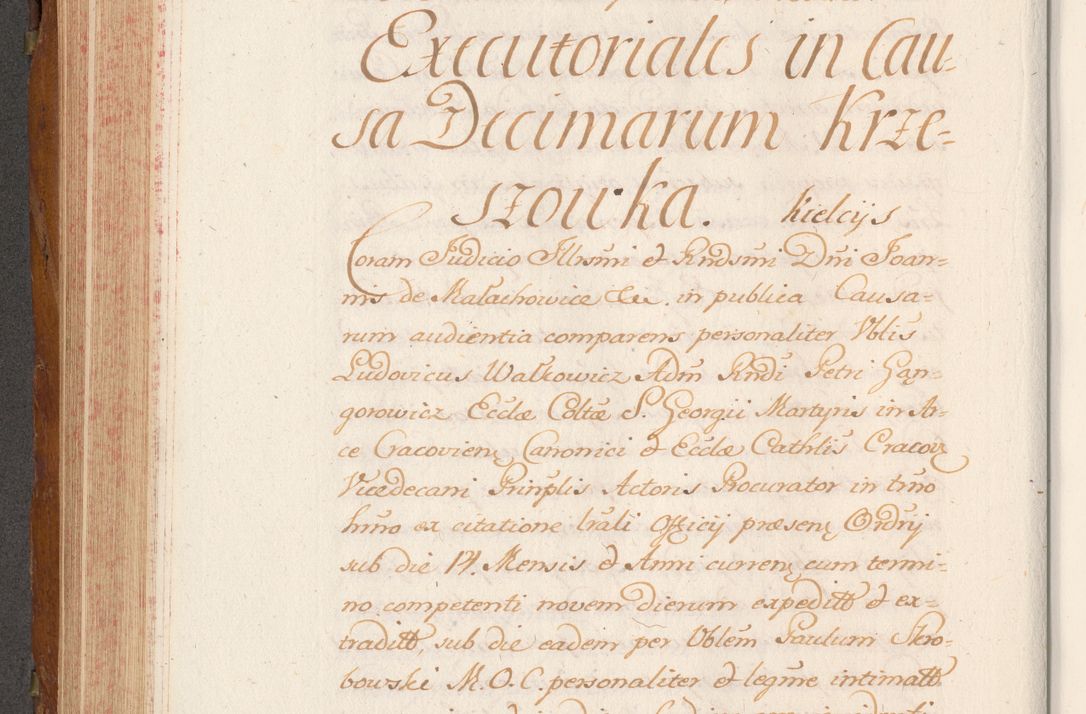 Executoriales in Cau-
sa Decimarum Krze-
szowka. Kielcijs
Coram Judicio Illrsmi et Rndsmi Dni Joan-
nis de Małachowice &c. in publica Causa-
rum audientia comparens personaliter Nblis
Ludovicus Walkowicz Adm Rndi Petri Gąn-
gorowicz Ecclæ Coltæ S. Georgii Martyris in Ar-
ce Cracovien, Canonici et Ecclæ Cathlis Cracov
Vicedecani Prinplis Actoris Procurator in tmo
hrno ex citatione lrali Officij præsen, Ordnij
sub die 14. Mensis et Anni curren, cum termi-
no competenti novem dierum expeditt et ex-
traditt, sub die eadem per Nblem Paulum Skro-
bowski M. O. C. personaliter et legme intimatt